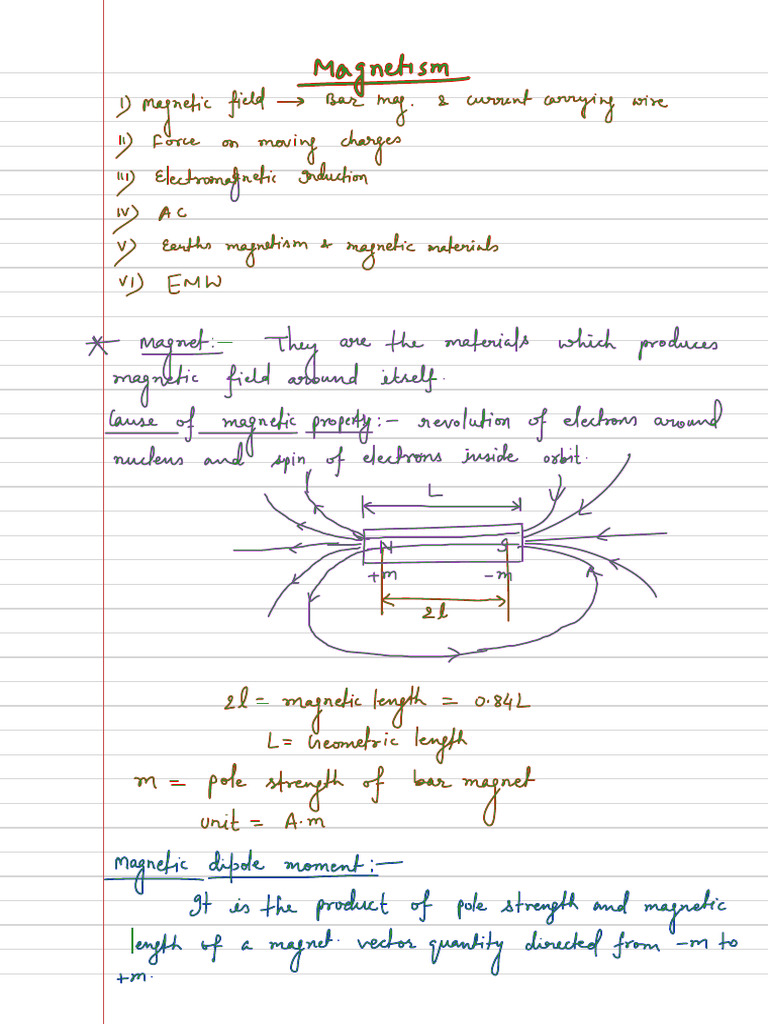 Magnetism
I) Magnetic field → Bar mag. & current carrying wire
II) Force on moving charges
III) Electromagnetic Induction
IV) AC
V) Earths magnetism & magnetic materials
VI) EMW
* Magnet:- They are the materials which produces
magnetic field around itself.
Cause of magnetic property:- revolution of electrons around
nucleus and spin of electrons inside orbit.
L
N S
+m -m
2l
2l = magnetic length = 0.84L
L = Geometric length
m = pole strength of bar magnet
unit = A.m
Magnetic dipole moment:-
It is the product of pole strength and magnetic
length of a magnet. vector quantity directed from -m to
+m.